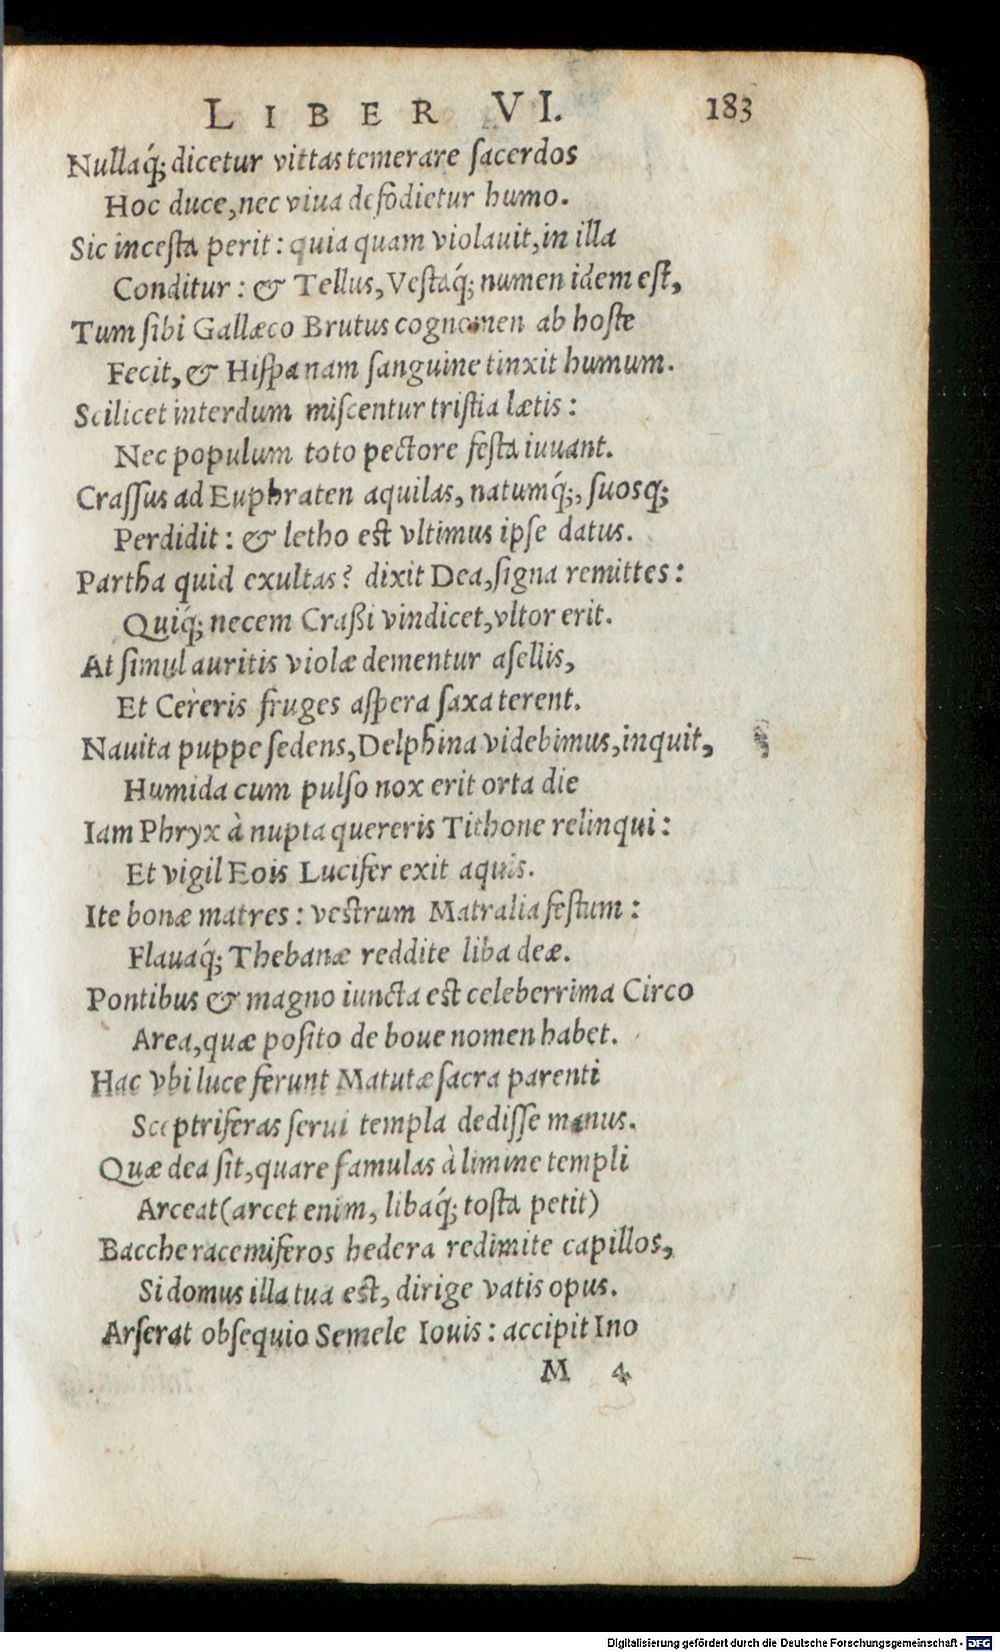 LIBER VI. 183
Nullaq́; dicetur vittas temerare ſacerdos
Hoc duce, nec viua defõdietur humo.
Sic inceſta perit: quia quam violauit, in illa
Conditur: & Tellus, Veſtaq́; numen idem eſt,
Tum ſibi Gallæco Brutus cognomen ab hoſte
Fecit, & Hiſpanam ſanguine tinxit humum.
Scilicet interdum miſcentur triſtia lætis:
Nec populum toto pectore feſta iuuant.
Craſſus ad Euphraten aquilas, natumq́;, ſuosq;
Perdidit: & letho est vltimus ipſe datus.
Partha quid exultas? dixit Dea, ſigna remittes:
Quiq́; necem Craßi vindicet, vltor erit.
At ſimul auritis violæ dementur aſellis,
Et Cereris fruges aſpera ſaxa terent.
Nauita puppe ſedens, Delphina videbimus, inquit,
Humida cum pulſo nox erit orta die
Iam Phryx à nupta quereris Tithone relinqui:
Et vigil Eois Lucifer exit aquis.
Ite bonæ matres: vestrum Matralia feſtum:
Flauaq́; Thebanæ reddite liba deæ.
Pontibus & magno iuncta est celeberrima Circo
Area, quæ poſito de boue nomen habet.
Hac vbi luce ferunt Matutæ ſacra parenti
Sceptriferas ſerui templa dediſſe manus.
Quæ dea ſit, quare famulas à limine templi
Arceat (arcet enim, libaq́; toſta petit)
Bacche racemiferos hedera redimite capillos,
Si domus illa tua est, dirige vatis opus.
Arſerat obſequio Semele Iouis: accipit Ino
M 4
Digitalisierung gefördert durch die Deutsche Forschungsgemeinschaft - DFG